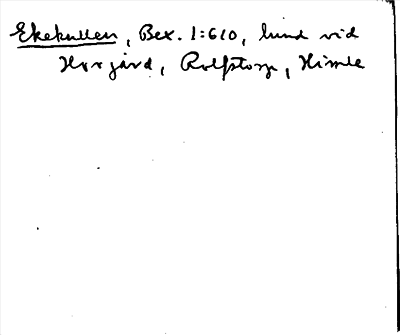 Ekekullen, Bex. 1:610, lund vid
Hxrgård, Rolfstorp, Himle